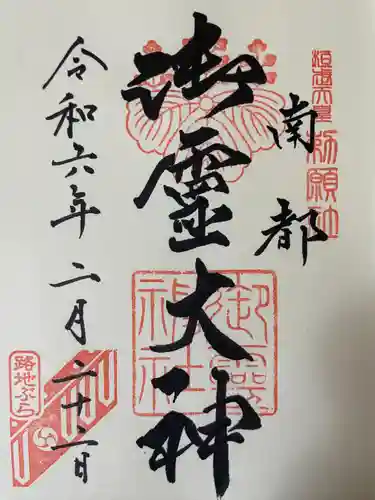 桓武天皇勅願社
南都
御靈大神
御靈神社
令和六年二月二十二日
路地ぶら